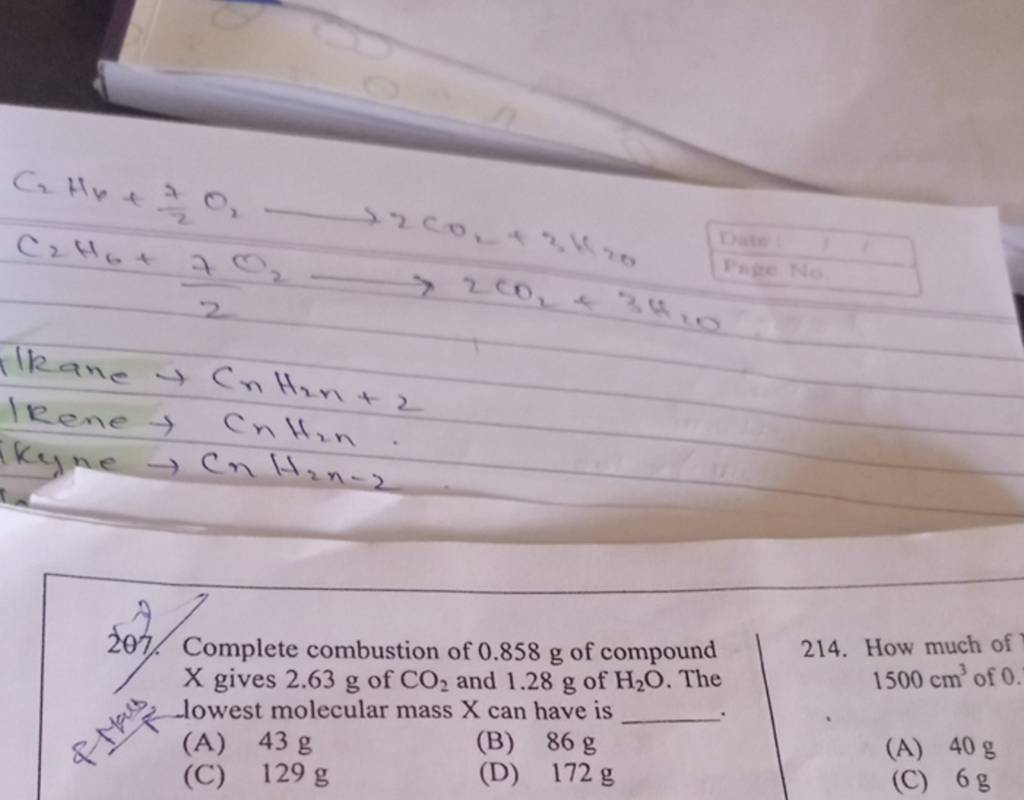 C₂H₆ + 7/2 O₂ → 2CO₂ + 3H₂O
Date : / /
Page No.
C₂H₆ + 7/2 O₂ → 2CO₂ + 3H₂O
lkane → CnH2n+2
lkene → CnH2n .
lkyne → CnH2n-2
207. Complete combustion of 0.858 g of compound
X gives 2.63 g of CO₂ and 1.28 g of H₂O. The
lowest molecular mass X can have is ______.
(A) 43 g (B) 86 g
(C) 129 g (D) 172 g
214. How much of
1500 cm³ of 0.
(A) 40 g
(C) 6 g